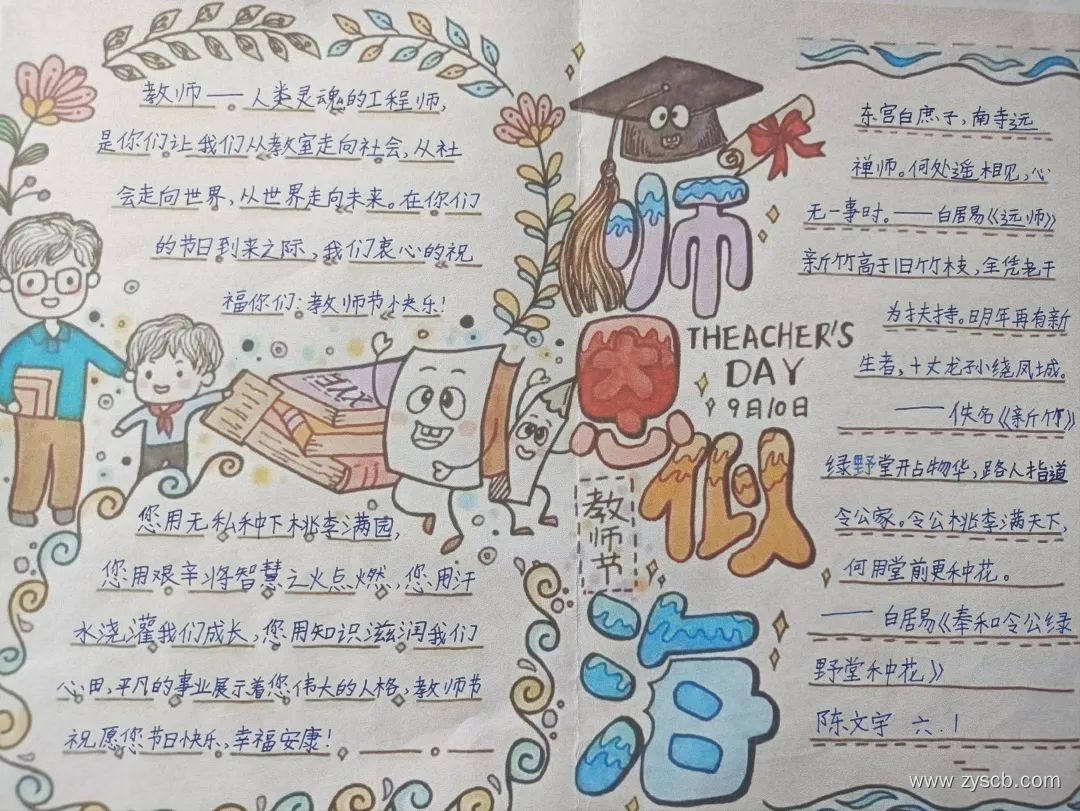 教师——人类灵魂的工程师,
是你们让我们从教室走向社会,从社
会走向世界,从世界走向未来。在你们
的节日到来之际,我们衷心的祝
福你们:教师节快乐!
您用无私种下桃李满园,
您用艰辛将智慧之火点燃,您用汗
水浇灌我们成长,您用知识滋润我们
心田,平凡的事业展示着您伟大的人格,教师节
祝愿您节日快乐、幸福安康!
师恩似海
THEACHER'S
DAY
9月10日
教师节
东宫白庶子,南寺远
禅师。何处遥相见,心
无一事时。——白居易《远师》
新竹高于旧竹枝,全凭老干
为扶持。明年再有新
生者,十丈龙孙绕凤城。
——佚名《新竹》
绿野堂开占物华,路人指道
令公家。令公桃李满天下,
何用堂前更种花。
——白居易《奉和令公绿
野堂种花》
陈文宇 六.1
www.zyscb.com